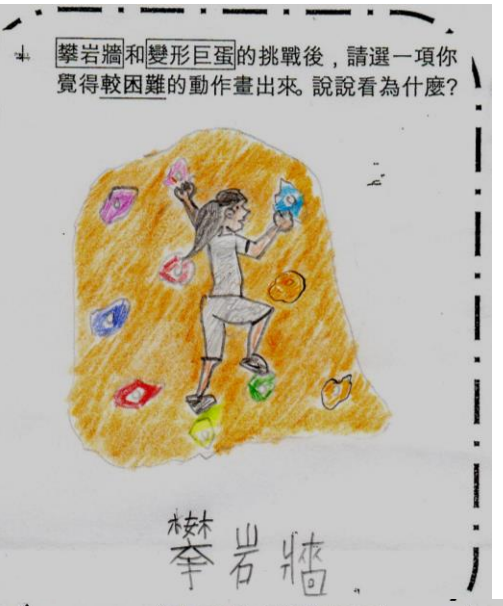 攀岩牆和變形巨蛋的挑戰後，請選一項你
覺得較困難的動作畫出來。說說看為什麼?
攀岩牆